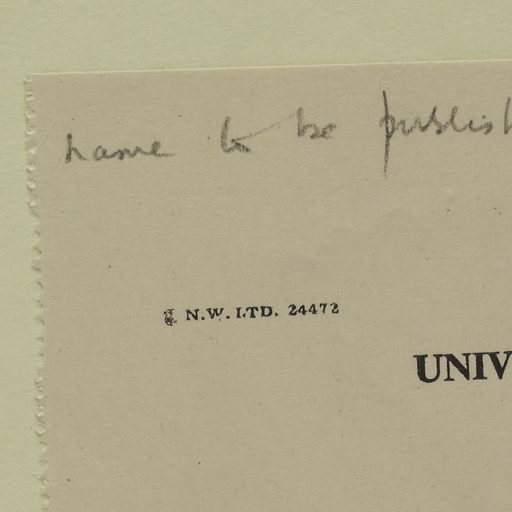 name to be publish
N.W. LTD. 24472
UNIV